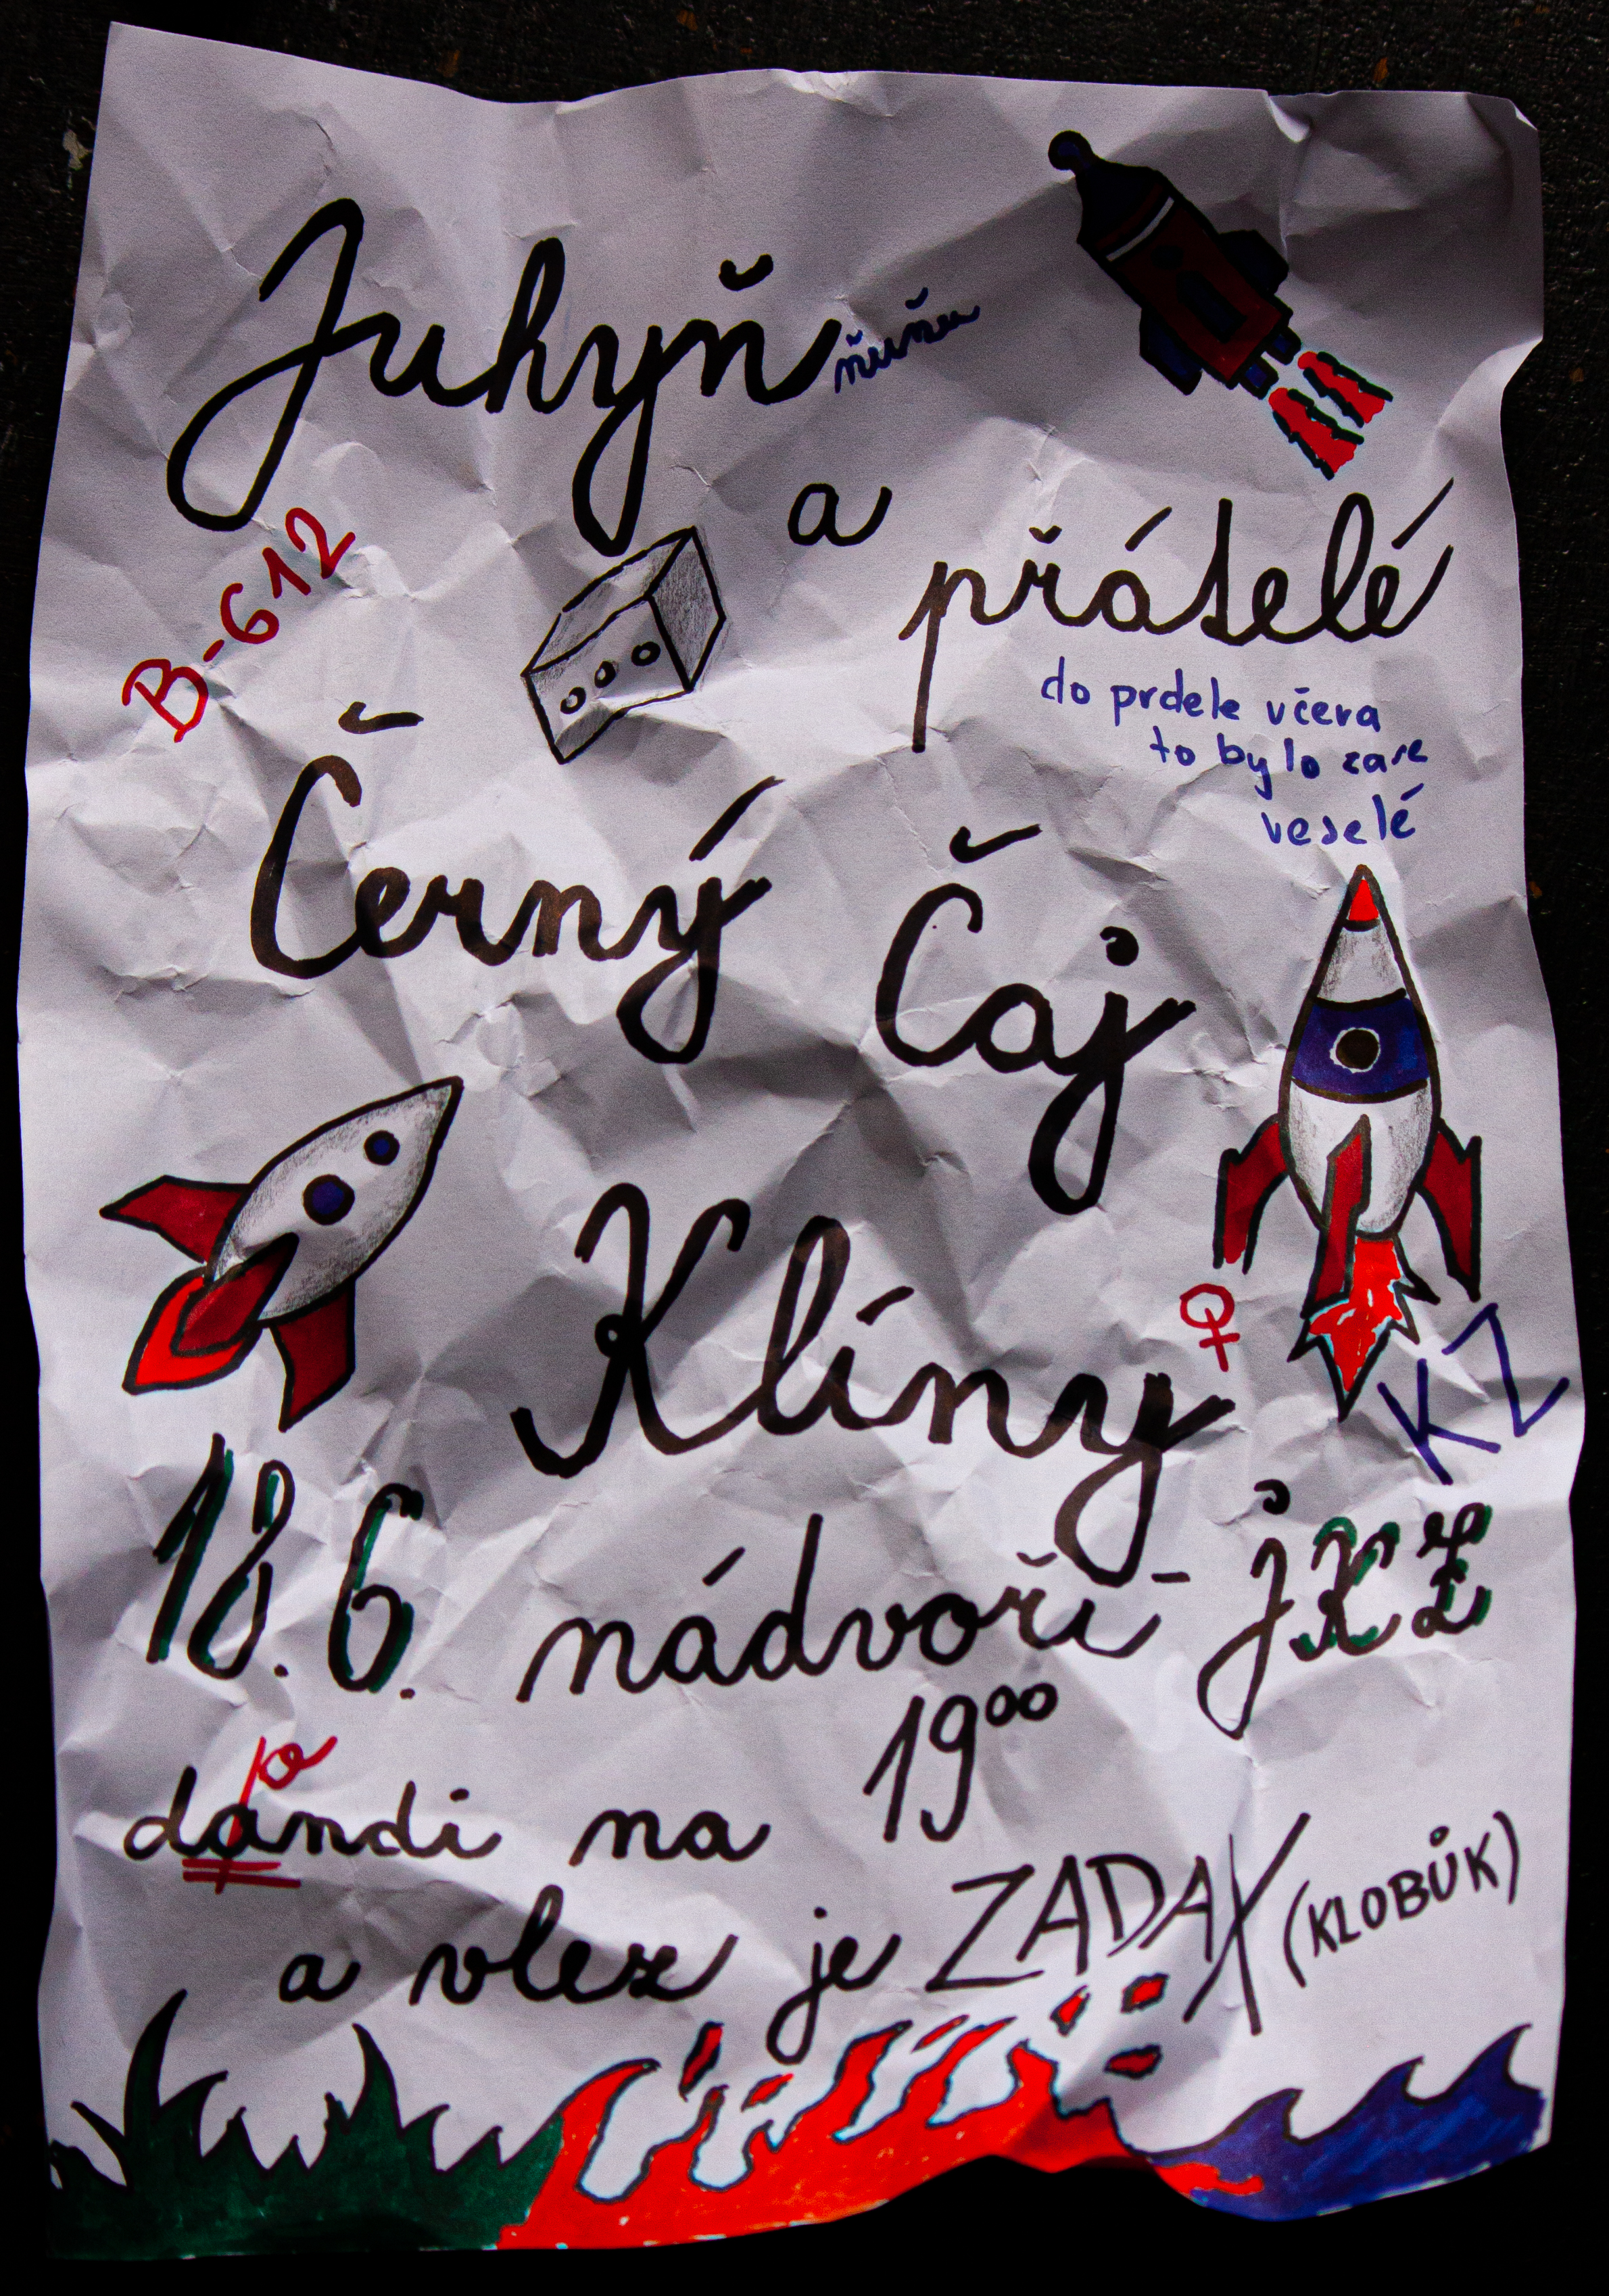 Juhyň ňuňu
a
přátelé
B-612
do prdele včera
to bylo zase
veselé
Černý Čaj
Klíny
♀
KZ
18.6. nádvoří JKŽ
19⁰⁰
o
dandi na
a vlez je ZADAX (KLOBŮK)